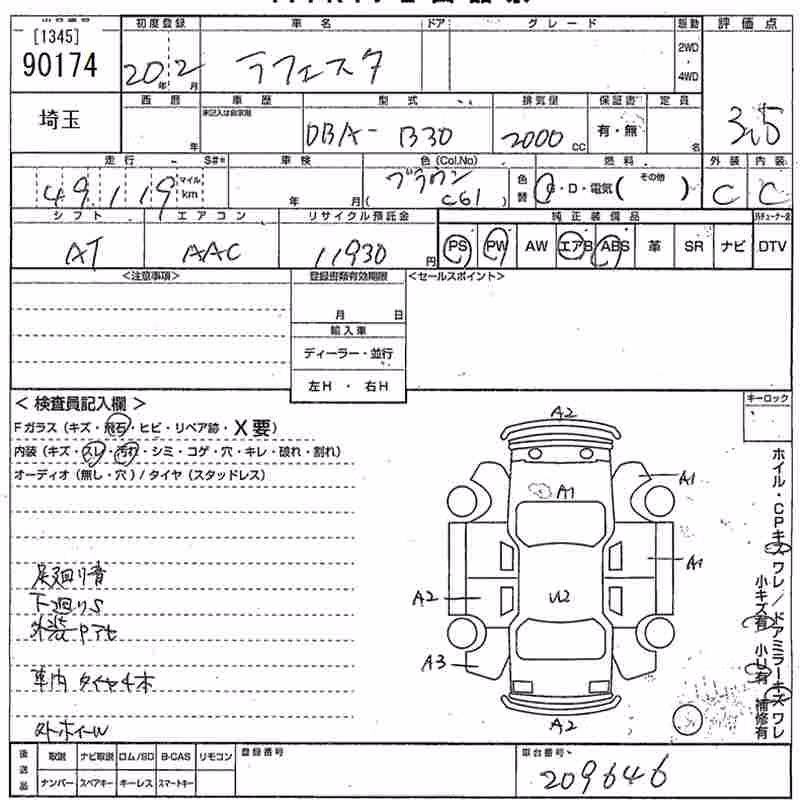 [1345]
90174
初度登録 車名 ドア グレード 駆動 評価点
20年 2月 ラフェスタ 2WD・4WD 3.5
埼玉
西暦 車歴 型式 排気量 保証書 定員
年 未記入は自家用 DBA-B30 2000cc 有・無 名
走行 S#* 車検 色(Col.No) 燃料 外装 内装
49,119 マイル km 年 月 ブラウン ( C61 ) 色替 G・D・電気( その他 ) C C
シフト エアコン リサイクル預託金 純正装備品
AT AAC 11930円 PS PW AW エアB ABS 革 SR ナビ DTV
<注意事項> 登録書類有効期限 <セールスポイント>
月 日
輸入車
ディーラー・並行
左H ・ 右H
< 検査員記入欄 > キーロック
Fガラス(キズ・飛石・ヒビ・リペア跡・X要)
内装(キズ・スレ・汚れ・シミ・コゲ・穴・キレ・破れ・割れ)
オーディオ(無し・穴)/タイヤ(スタッドレス)
A2
A1
A1
A1
A2
U2
A3
A2
足廻り音
下廻りS
外装Pアセ
車内タイヤ4本
外ホイールW
ホイル・CPキズワレ/ドアミラーキズワレ
小キズ有 小U有 補修有
後送品 取説 ナビ取説 ロム/SD B-CAS リモコン 登録番号 車台番号
ナンバー スペアキー キーレス スマートキー 209646